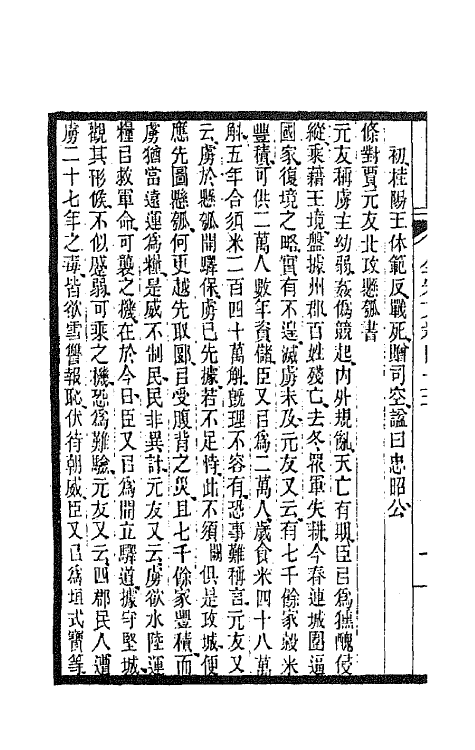 初桂陽王休範反戰死贈司空諡曰忠昭公
條對賈元友北攻懸瓠書
元友稱虜主幼弱姦僞競起內外規亂天亡有期臣㠯爲獯醜侵
縱乘藉王境盤據州郡百姓殘亡去冬眾軍失耕今春連城圍逼
國家復境之略實有不遑滅虜未及元友又云有七千餘家穀米
豐積可供二萬人數年資儲臣又㠯爲二萬人歲食米四十八萬
斛五年合須米二百四十萬斛旣理不容有恐事難稱言元友又
云虜於懸瓠開驛保虜已先據若不足恃此不須關俱是攻城便
應先圖懸瓠何更越先取郾㠯受腹背之災且七千餘家豐積而
虜猶當遠運爲糧是威不制民民非異計元友又云虜欲水陸運
糧㠯救軍命可襲之機在於今日臣又㠯爲開立驛道據守堅城
觀其形候不似蹙弱可乘之機恐爲難驗元友又云四郡民人遭
虜二十七年之毒皆欲雪讐報恥伏待朝威臣又㠯爲垣式寶等